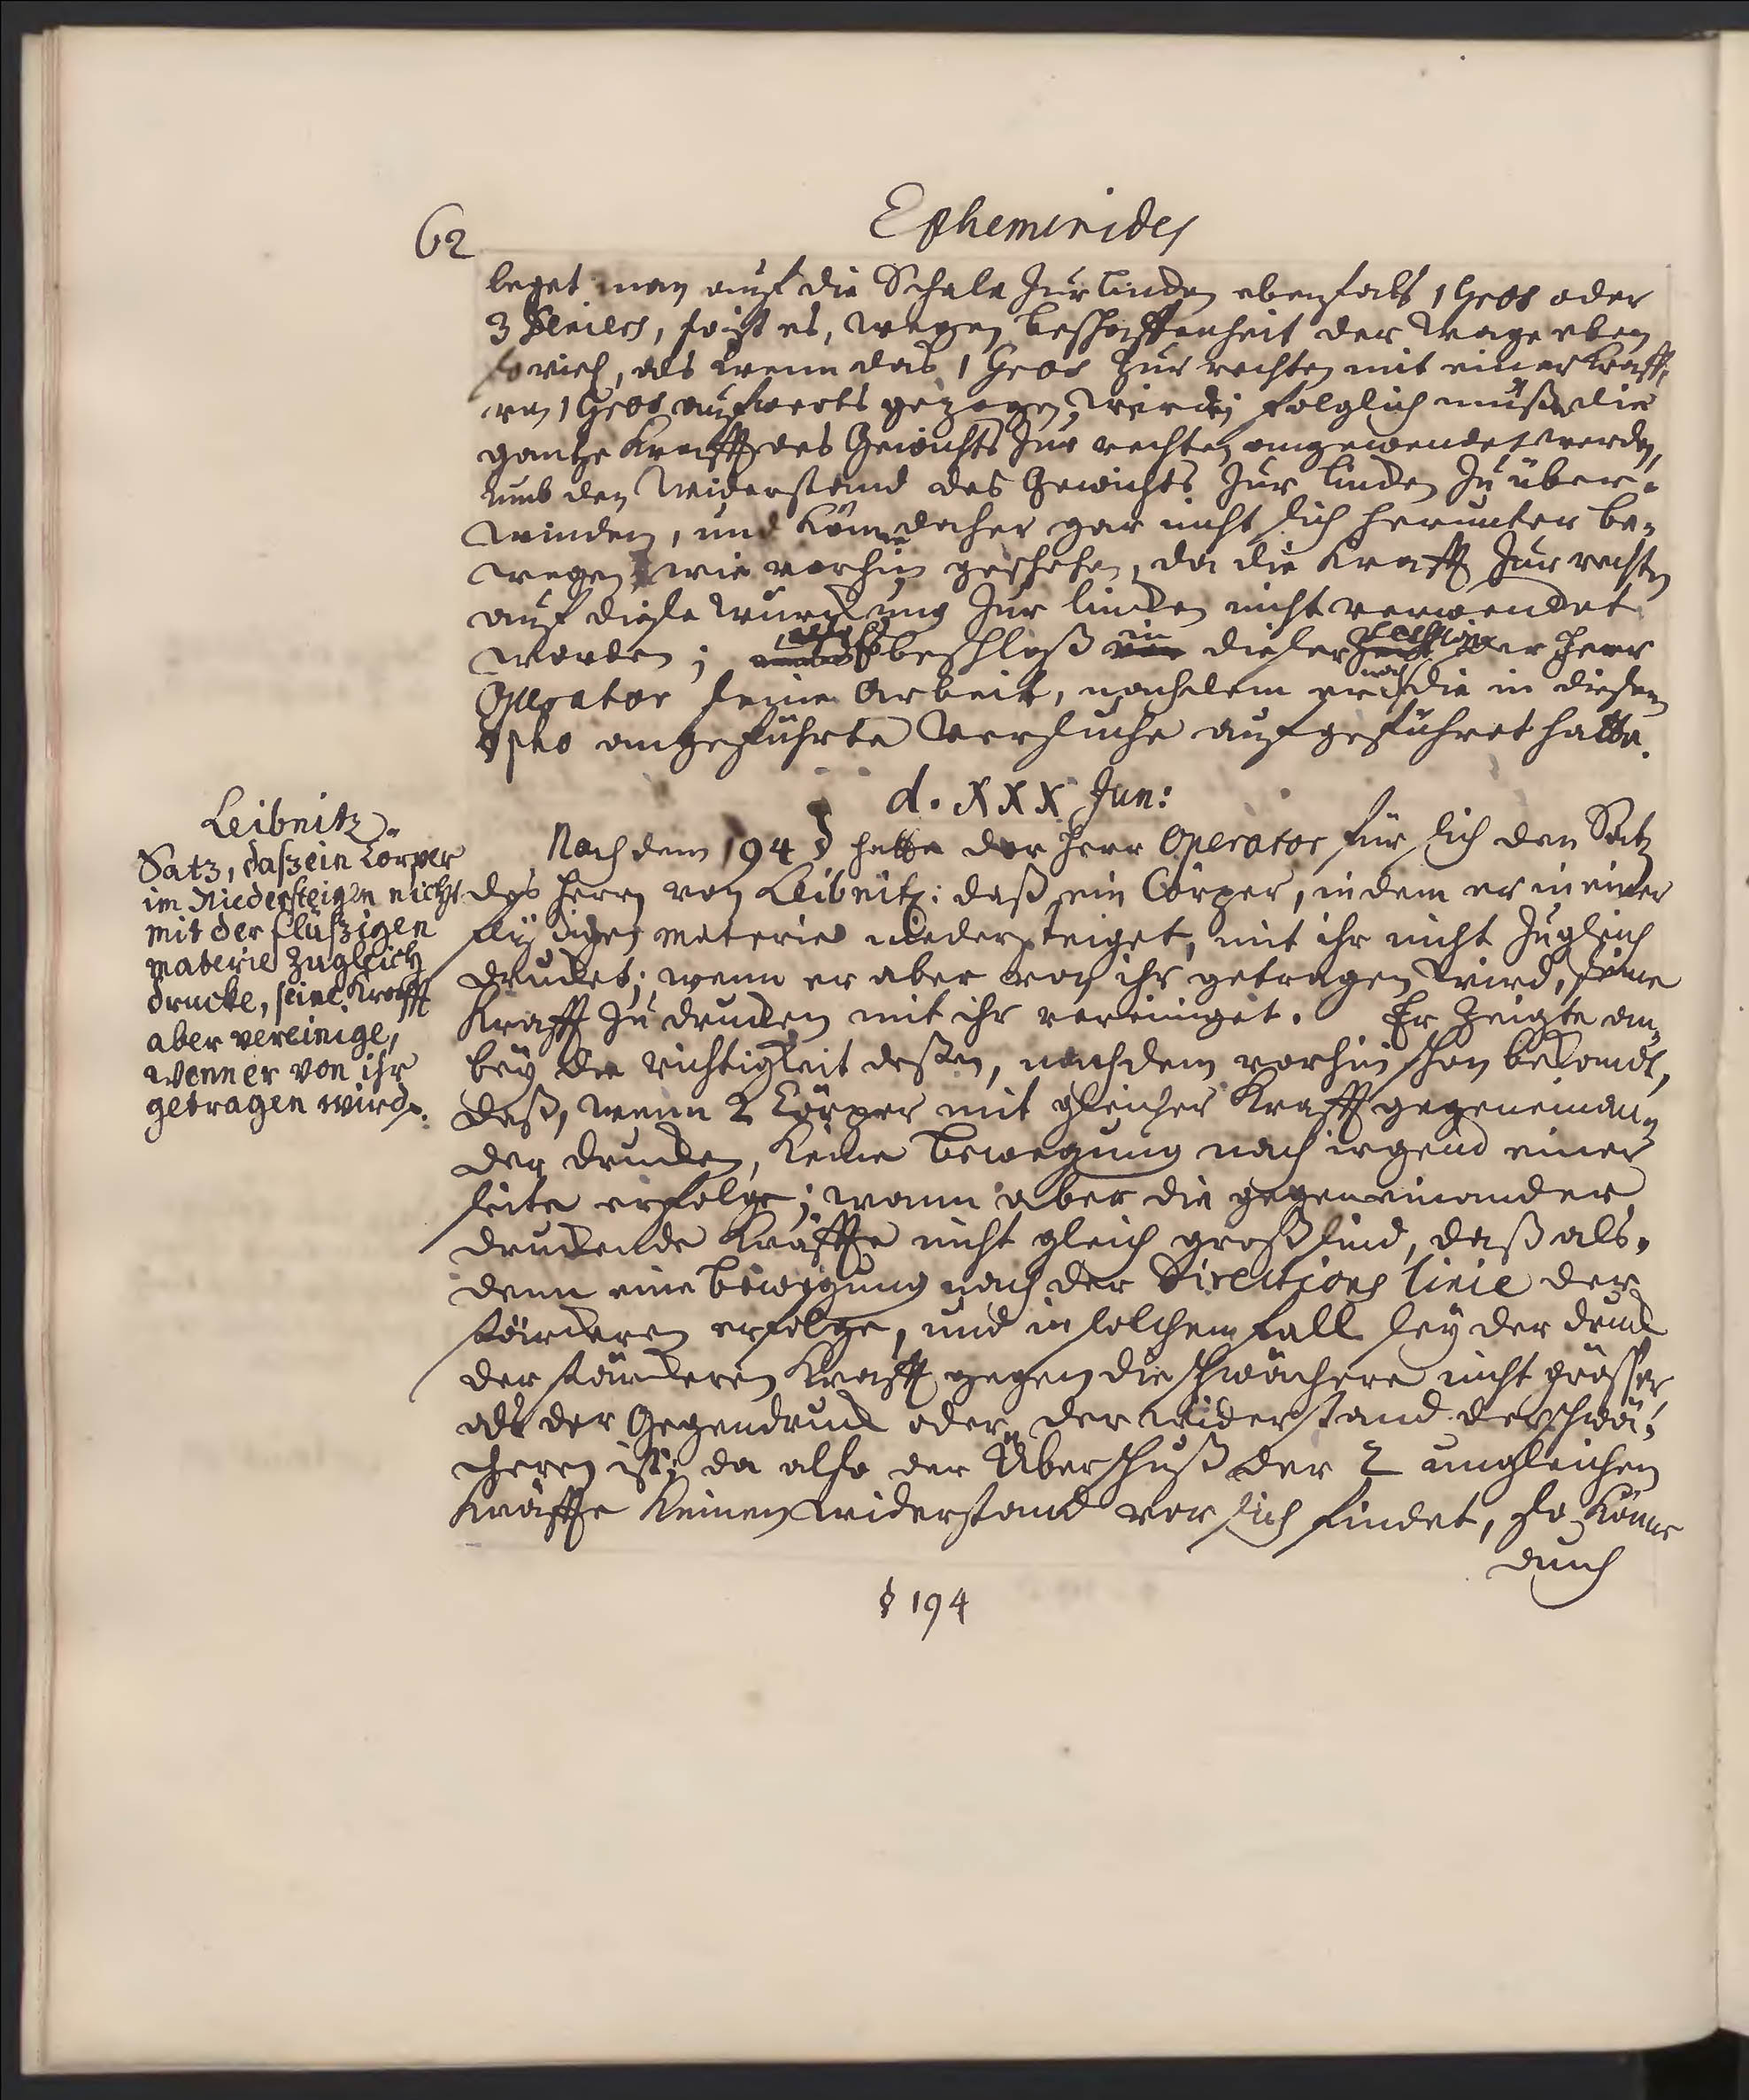 62
Ephemerides
leget man auf die Schale zur lincken ebenfals 1 Gros oder
3 Deniers, so ist es, wegen beschaffenheit der Wage eben
so viel, als wenn das 1 Gros zur rechten mit einer Krafft
von 1 Gros aufwerts gezogen würde; folglich muß die
gantze Krafft des Gewichts zur rechten angewendet werden,
umb den Widerstand des Gewichts zur lincken zu über-
winden, und könne daher gar nicht sich herunter be-
wegen wie vorhin geschehen, da die Krafft zur rechten
auf diese Würckung zur lincken nicht verwendet
worden; also beschloß in dieser Lection der Herr
Operator seine Arbeit, nachdem er noch die in diesem
§pho angeführte Versuche aufgeführet hatte.
d. XXX Jun:
Leibnitz.
Satz, daß ein Cörper
im Niedersteigen nicht
mit der flüßigen
materie zugleich
drucke, seine Krafft
aber vereinige,
wenn er von ihr
getragen wird.
Nach dem 194 § hatte der Herr Operator für sich den Satz
des Herrn von Leibnitz: daß ein Cörper, in dem er in einer
flüßigen materie niedersteiget, mit ihr nicht zugleich
drucket; wenn er aber von ihr getragen wird, seine
Krafft zu drucken mit ihr vereiniget. Er zeigte an-
bey die richtigkeit deßen, nachdem vorhin schon bekandt,
daß, wenn 2 Cörper mit gleicher Krafft gegeneinan-
der drucken, keine bewegung nach irgend einer
seite erfolge; wann aber die gegeneinander
druckende Kräffte nicht gleich groß sind, daß als-
denn eine bewegung nach der Directions linie der
stärckeren erfolge, und in solchem fall sey der druck
der stärckeren Krafft gegen die schwächere nicht grösser
als der Gegendruck oder der Widerstand der schwä-
cheren ist; da also der Überschuß der 2 ungleichen
Kräffte keinen widerstand vor sich findet, so könne
durch
§ 194